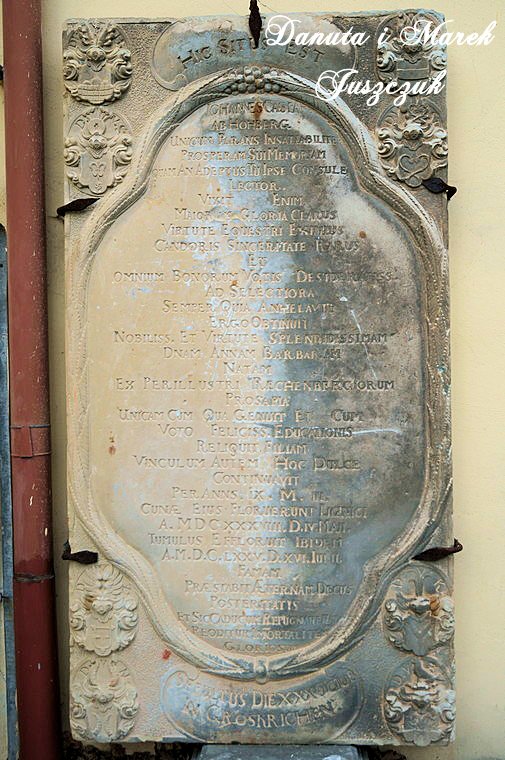 Danuta i Marek
Juszczuk
HIC SITUS EST
IOHANNES CASPAR
AB HOHBERG
UNICUM PARANS INSATIABILITER
PROSPERAM SUI MEMORIAM
QUAM AN ADEPTUS TU IPSE CONSULE
LECTOR.
VIXIT ENIM
MAIORUM GLORIA CLARUS
VIRTUTE EQUESTRI EXIMIUS
CANDORIS SINCERITATE RARUS
ET
OMNIUM BONORUM VOTIS
AD SELECTIORA
SEMPER QUIA ANHELAVIT
ERGO OBTINUIT
NOBILISS. ET VIRTUTE SPLENDIDISSIMAM
DNAM ANNAM BARBARAM
NATAM
EX PERILLUSTRI
PROSAPIA
UNICAM CUM QUA GENUIT ET CUM
VOTO FELICISS. EDUCATIONIS
RELIQUIT FILIAM
VINCULUM AUTEM HOC DULCE
CONTINUAVIT
PER ANNS. IX. M. II.
CUNÆ EIUS FLORUERUNT LIGNICI
A. M DC XXXVIII. D. IV MAII.
TUMULUS EFFLORUIT IBIDEM
A. M.D.C. LXXV. D. XVI. IUNII.
FAMAM
PRÆSTABIT ÆTERNAM DECUS
POSTERITATIS
ET SIC CADUCUM REPUGNAVIT
MORTALITES
GLORIOSUS
DIE XXX
IN GROSKRICHEN